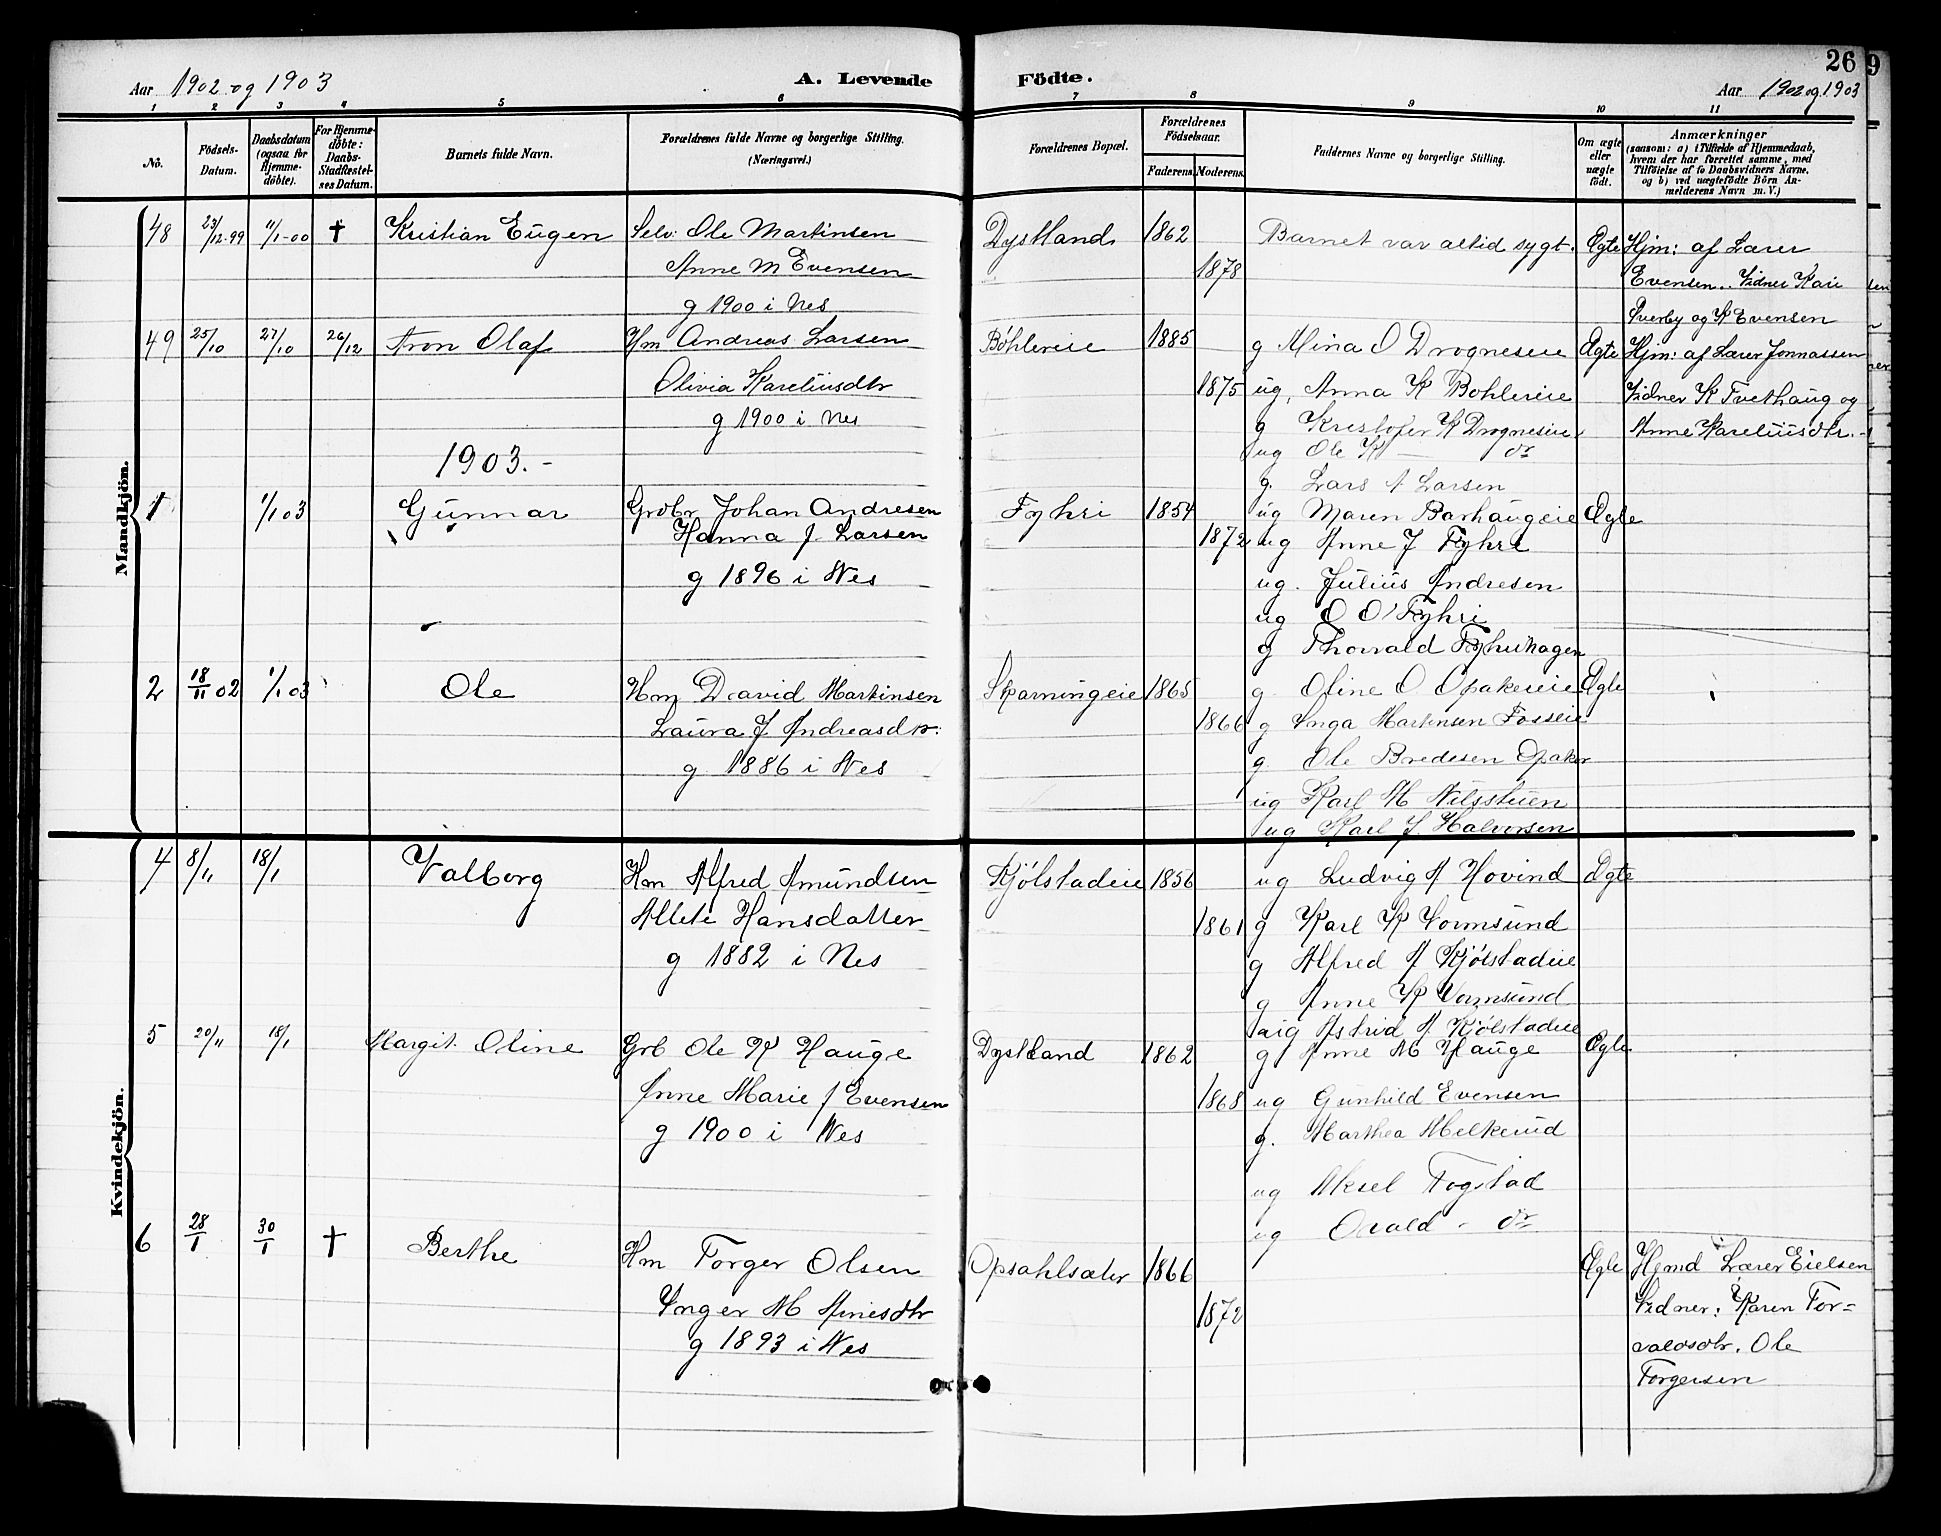 Aar 1902 og 1903 A. Levende Födte. Aar 1902 og 1903
26
9
1 2 3 4 5 6 7 8 9 10 11
No.
Födsels-Datum.
Daabsdatum (ogsaa for Hjemme-döbte).
For Hjemme-döbte: Daabs-Stadfæstel-ses Datum.
Barnets fulde Navn.
Forældrenes fulde Navne og borgerlige Stilling. (Næringsvei.)
Forældrenes Bopæl.
Forældrenes Födselsaar.
Faderens Moderens
Faddernes Navne og borgerlige Stilling.
Om ægte eller uægte födt.
Anmærkninger
(saasom: a) i Tilfælde af Hjemmedaab, hvem der har forrettet samme, med Tilföielse af to Daabsvidners Navne, og b) ved uægtefödte Börn An-melderens Navn m. V.)
Mandkjön.
48 23/12-99 11/1-00 † Kristian Eugen Selv: Ole Martinsen Dystland 1862 Barnet var altid sygt. Ægte Hjm: af Lærer
Anne M Evensen 1878 Evensen.. Vidner Kari
g 1900 i Nes Sverby og K Evensen
49 25/10 27/10 26/12 Tron Olaf Hm Andreas Larsen Böhlereie 1885 g Mina O Drogneseie Ægte Hjm: af Lærer Jonnassen
Olivia Kareliusdtr 1875 ug, Anna K Bohlereie Vidner K Tvethaug og
g 1900 i Nes g Kristofer K Drogneseie Anne Kareliusdtr. -
ug Ole K — do
1903. - g. Lars A Larsen
1 1/1 03 Gunnar Grdbr Johan Andresen Fyhri 1854 ug Maren Barhaugeie Ægte
Hanna J Larsen 1872 ug Anne J Fyhri
g 1896 i Nes ug. Julius Andresen
ug O O Fyhri
g Thorvald Fyhrihagen
2 18/11 02 1/1 03 Ole Hm David Martinsen Skarningeie 1865 g. Oline O Opakereie Ægte
Laura J Andreasdtr. 1866 g Inga Martinsen Fosseie
g 1886 i Nes g. Ole Bredesen Opaker
ug Karl M Nilsstuen
ug Karl J. Halvorsen
Kvindekjön.
4 8/11 18/1 Valborg Hm Alfred Amundsen Kjölstadeie 1856 ug Ludvig A Hovind Ægte
Allete Hansdatter 1861 g Karl K Vormsund
g 1882 i Nes g Alfred A Kjölstadeie
g Anne K Vormsund
ug Astrid A. Kjölstadeie
5 20/11 18/1 Margit Oline Grb Ole K Hauge Dystland 1862 g Anne M Hauge Ægte
Anne Marie J Evensen 1868 ug Gunhild Evensen
g 1900 i Nes g. Marthea Melkerud
ug Aksel Fogstad
ug Osvald - do
6 28/1 30/1 † Berthe Hm Torger Olsen Opsahlsæter 1866 Ægte Hjmd Lærer Eielsen
Inger M Arnesdtr 1872 Vidner: Karen Tor=
g 1893 i Nes valdsdtr. Ole
Torgersen